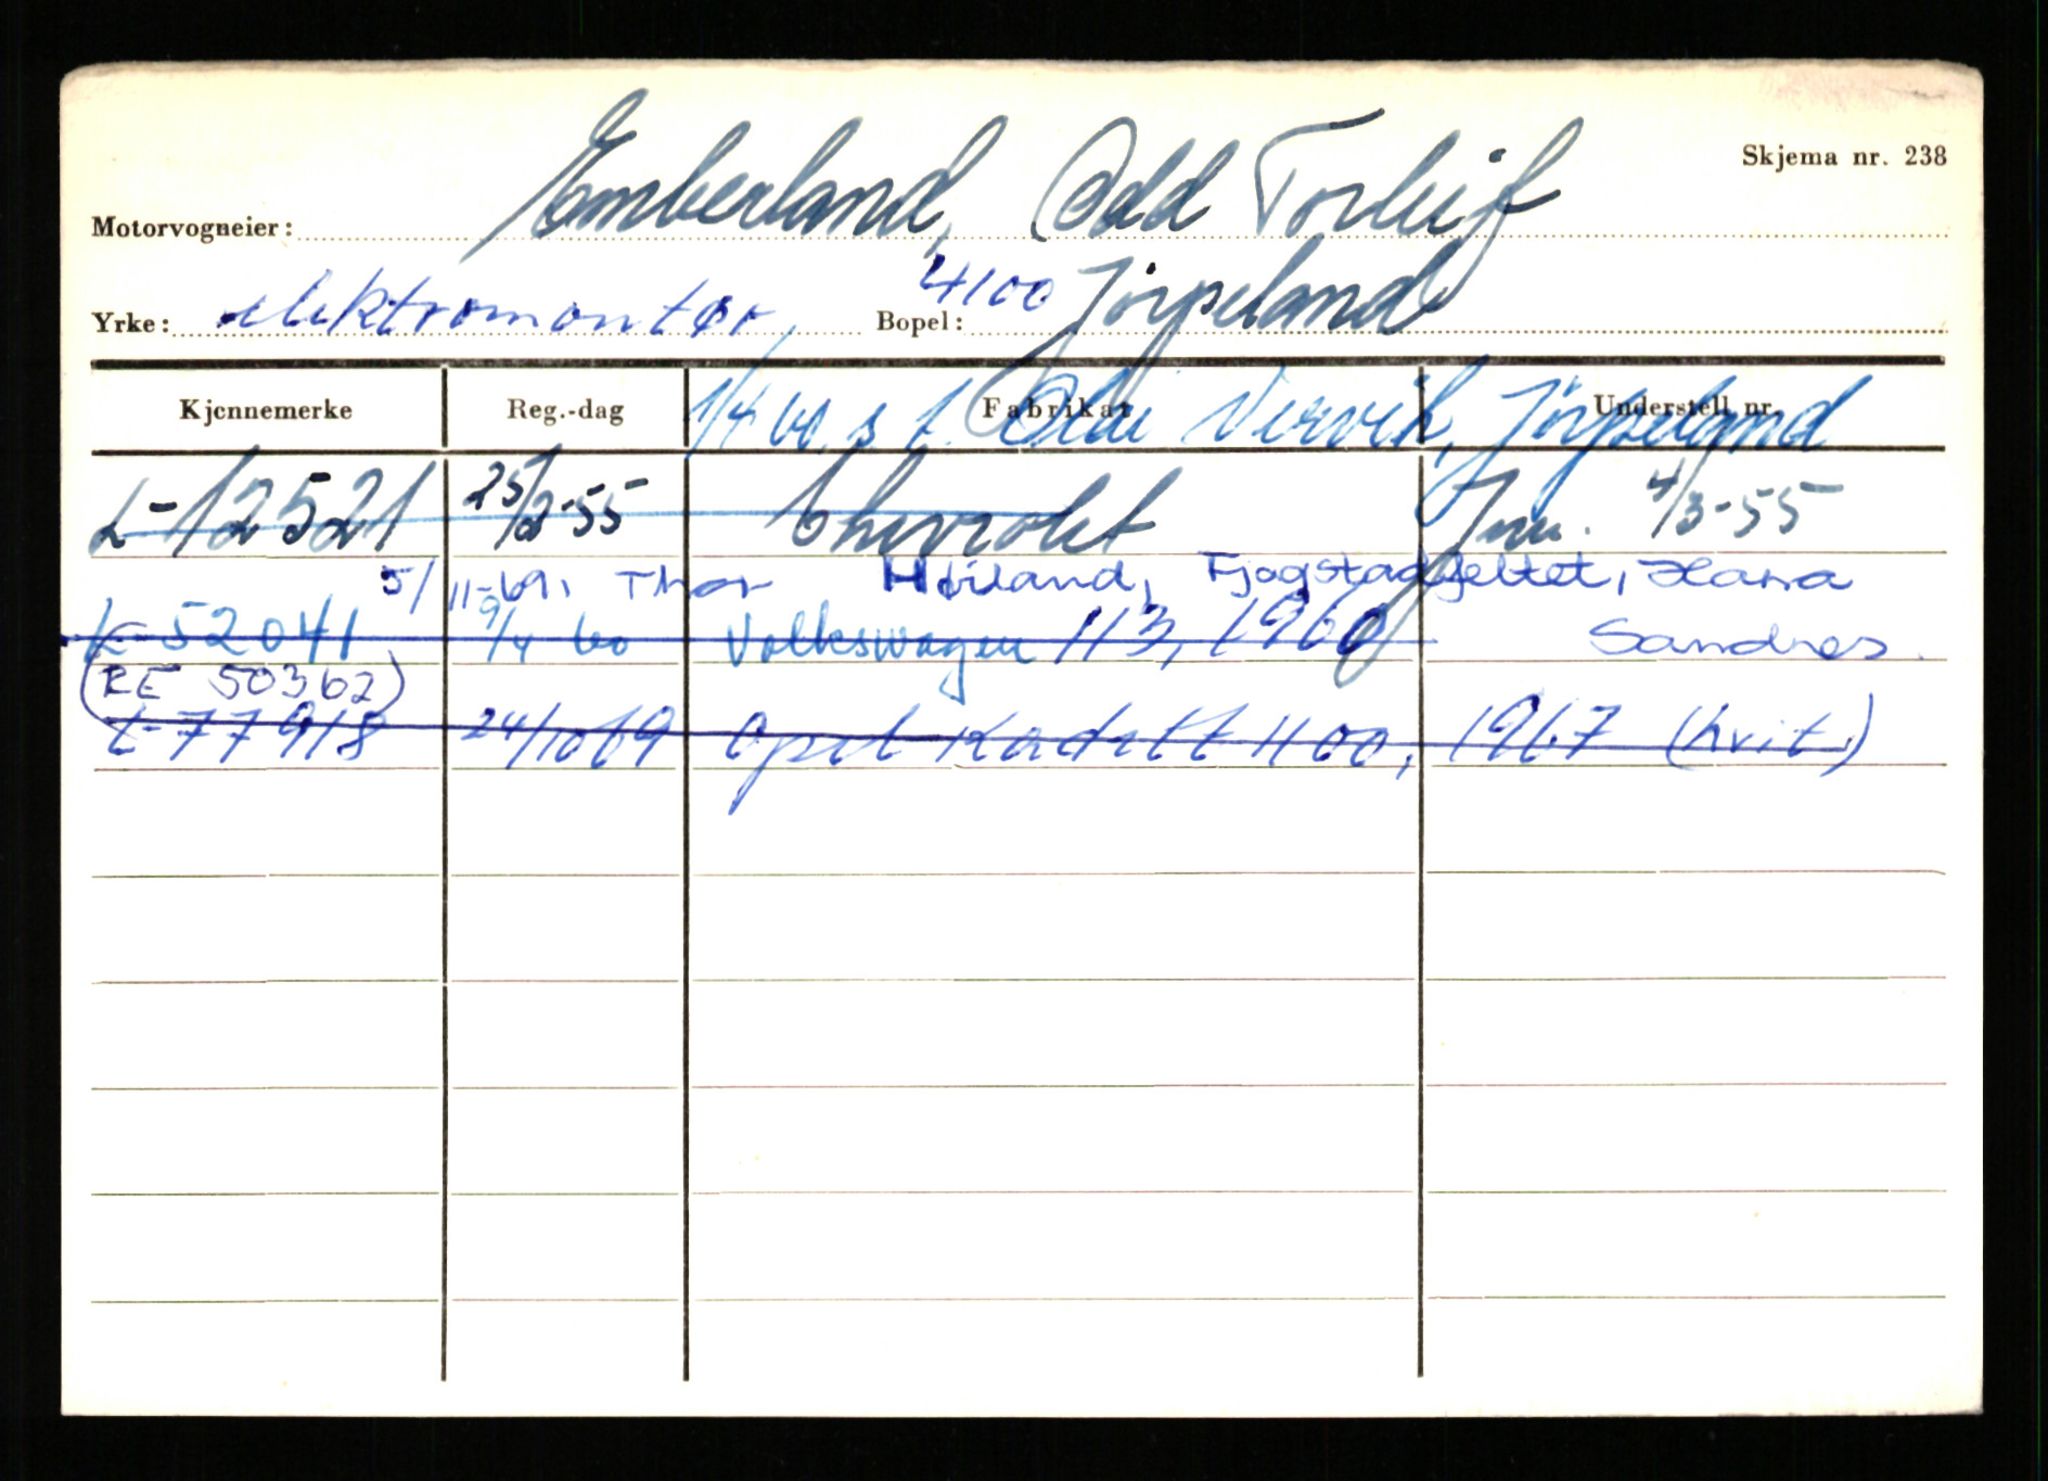 Skjema nr. 238
Motorvogneier: Emberland, Odd Torleif
Yrke: elektromontør, Bopel: 4100 Jörpeland
Kjennemerke Reg.-dag Fabrikat Understell nr.
1/4 60. s t. Olai Nervik, Jörpeland
L-12521 25/2-55 Chevrolet Inn. 4/3-55
5/11-69, Thor Høiland, Fjogstadfeltet, Hana
L-52041 9/4 60 Volkswagen 113, 1960 Sandnes.
(RE 50362)
L-77918 24/10 69 Opel Kadett 1100, 1967 (hvit)